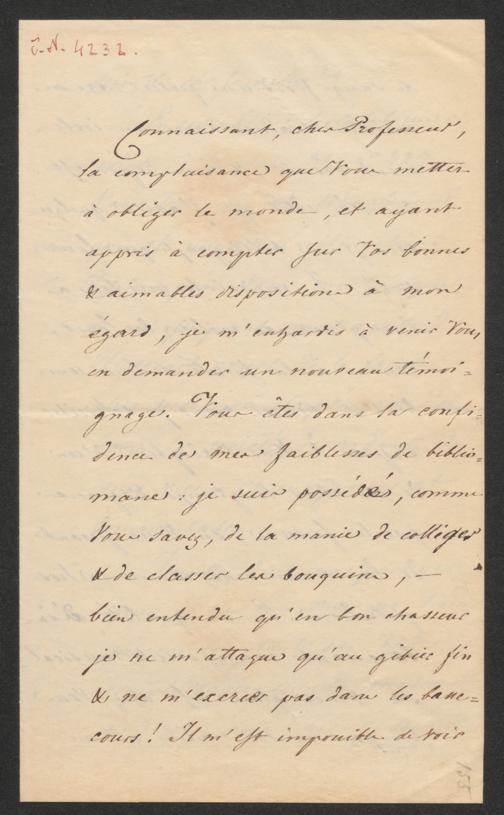 č.N. 4232.
Connaissant, cher Professeur,
la complaisance que Vous mettez
à obliger le monde, et ayant
appris à compter sur Vos bonnes
& aimables dispositions à mon
égard, je m'enhardis à venir Vous
en demander un nouveau témoi-
gnage. Vous êtes dans la confi-
dence de mes faiblesses de biblio-
mane : je suis possédé, comme
Vous savez, de la manie de colliger
& de classer les bouquins, —
bien entendu qu'en bon chasseur
je ne m'attaque qu'au gibier fin
& ne m'exerce pas dans les basse=
cours! Il m'est impossible de voir